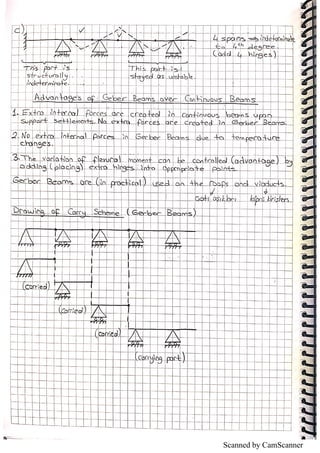 c)
4 spans → indeterminate
to 4th degree.
(add 4 hinges)
This part is
structurally
indeterminate.
This part is
stayed as unstable.
Advantages of Gerber Beams over Continuous Beams
1. Extra internal forces are created in continuous beams upon
support settlements. No extra forces are created in Gerber Beams.
2. No extra internal forces in Gerber Beams due to temperature
changes.
3. The variation of flexural moment can be controlled (advantage) by
adding (placing) extra hinges into appropriate points.
Gerber Beams are (in practical) used on the roofs and viaducts.
Drawing of Carry Scheme (Gerber Beams)
(carried)
(carried)
(carried)
(carrying part)
Scanned by CamScanner